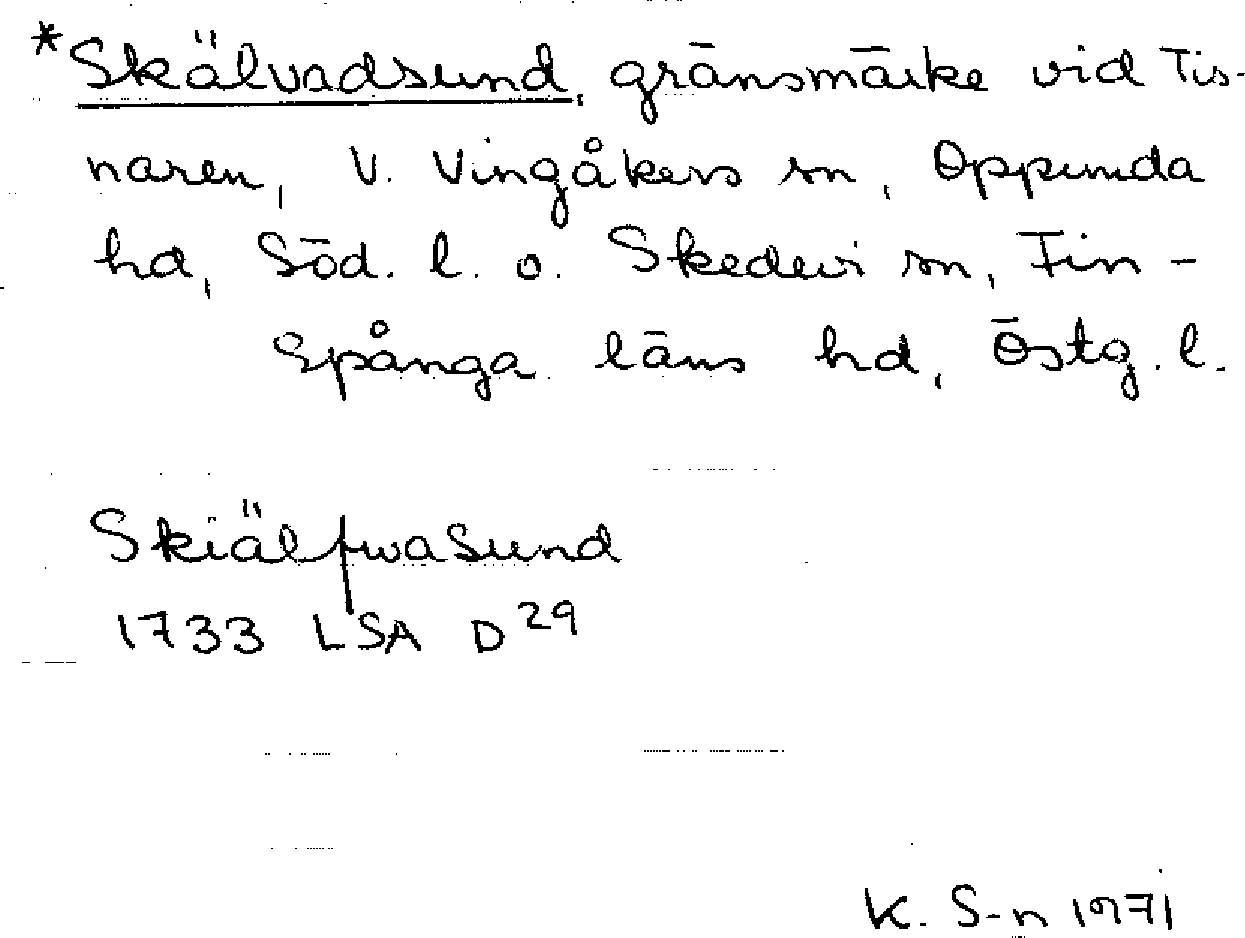 *Skälvadsund, gränsmärke vid Tis-
naren, V. Vingåkers sn, Oppunda
hd, Söd. l. o. Skedevi sn, Fin-
spånga läns hd, Östg. l.
Skiälfwasund
1733 LSA D29
K. S-n 1971